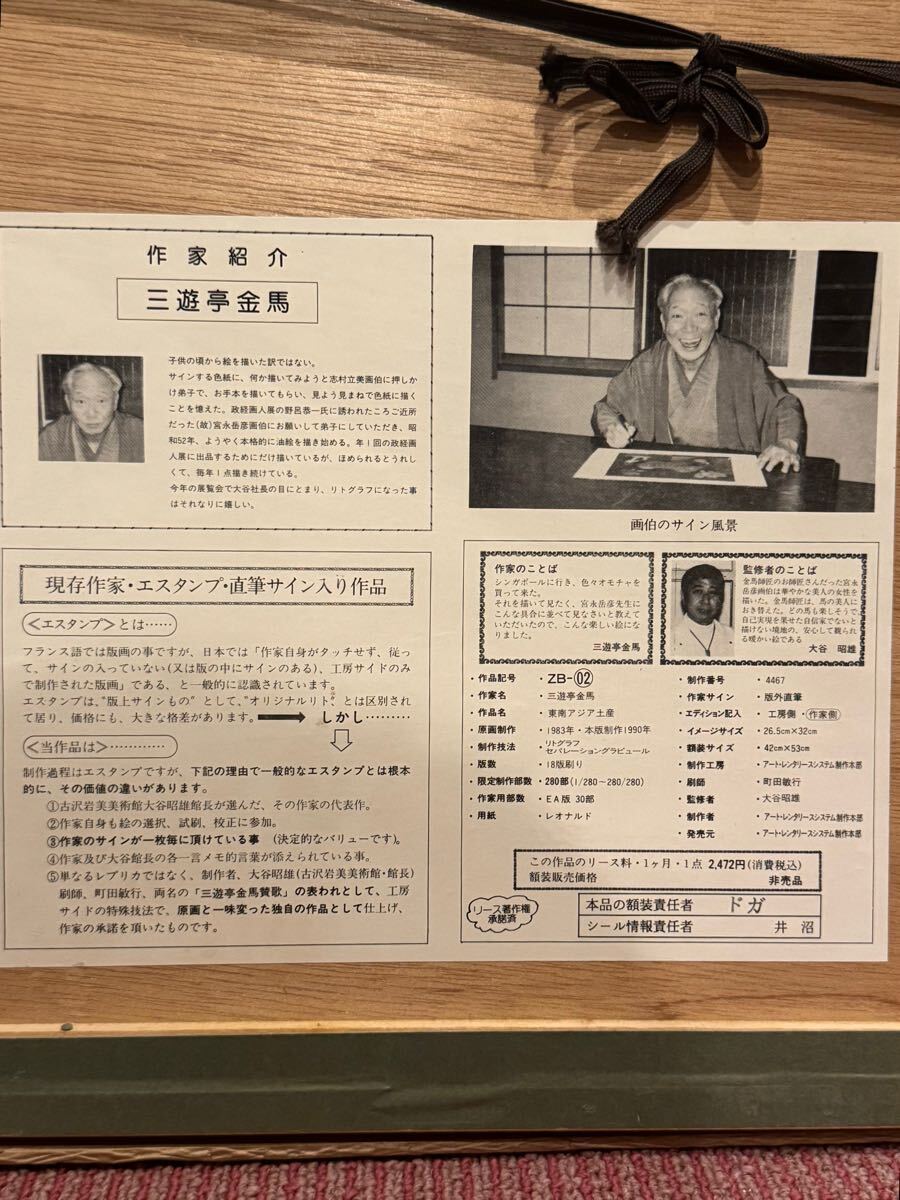 作家紹介
三遊亭金馬
子供の頃から絵を描いた訳ではない。
サインする色紙に、何か描いてみようと志村立美画伯に押しか
け弟子で、お手本を描いてもらい、見よう見まねで色紙に描く
ことを憶えた。政経画人展の野呂恭一氏に誘われたころご近所
だった(故)宮永岳彦画伯にお願いして弟子にしていただき、昭
和52年、ようやく本格的に油絵を描き始める。年1回の政経画
人展に出品するためにだけ描いているが、ほめられるとうれし
くて、毎年1点描き続けている。
今年の展覧会で大谷社長の目にとまり、リトグラフになった事
はそれなりに嬉しい。
画伯のサイン風景
現存作家・エスタンプ・直筆サイン入り作品
<エスタンプ>とは……
フランス語では版画の事ですが、日本では「作家自身がタッチせず、従っ
て、サインの入っていない(又は版の中にサインのある)、工房サイドのみ
で制作された版画」である、と一般的に認識されています。
エスタンプは、“版上サインもの”として、“オリジナルリト”とは区別され
て居り、価格にも、大きな格差があります。➡ しかし………
<当作品は>…………
制作過程はエスタンプですが、下記の理由で一般的なエスタンプとは根本
的に、その価値の違いがあります。
①古沢岩美美術館大谷昭雄館長が選んだ、その作家の代表作。
②作家自身も絵の選択、試刷、校正に参加。
③作家のサインが一枚毎に頂けている事 (決定的なバリューです)。
④作家及び大谷館長の各一言メモ的言葉が添えられている事。
⑤単なるレプリカではなく、制作者、大谷昭雄(古沢岩美美術館・館長)
刷師、町田敏行、両名の「三遊亭金馬賛歌」の表われとして、工房
サイドの特殊技法で、原画と一味変った独自の作品として仕上げ、
作家の承諾を頂いたものです。
作家のことば
シンガポールに行き、色々オモチャを
買って来た。
それを描いて見たく、宮永岳彦先生に
こんな具合に並べて見なさいと教えて
いただいたので、こんな楽しい絵にな
りました。
三遊亭金馬
監修者のことば
金馬師匠のお師匠さんだった宮永
岳彦画伯は華やかな美人の女性を
描いた。金馬師匠は、馬の美人に
おき替えた。どの馬も楽しそうで
自己実現を果せた自信家でないと
描けない境地の、安心して観られ
る暖かい絵である
大谷 昭雄
・作品記号 ・ZB-02
・作家名 ・三遊亭金馬
・作品名 ・東南アジア土産
・原画制作 ・1983年・本版制作1990年
・制作技法 ・リトグラフ
セパレーショングラビュール
・版数 ・18版刷り
・限定制作部数 ・280部(1/280~280/280)
・作家用部数 ・EA版 30部
・用紙 ・レオナルド
・制作番号 ・4467
・作家サイン ・版外直筆
・エディション記入 ・工房側・作家側
・イメージサイズ ・26.5cm×32cm
・額装サイズ ・42cm×53cm
・制作工房 ・アート・レンタリースシステム制作本部
・刷師 ・町田敏行
・監修者 ・大谷昭雄
・制作者 ・アート・レンタリースシステム制作本部
・発売元 ・アート・レンタリースシステム制作本部
この作品のリース料・1ヶ月・1点 2,472円(消費税込)
額装販売価格 非売品
リース著作権
承諾済
本品の額装責任者 ドガ
シール情報責任者 井沼